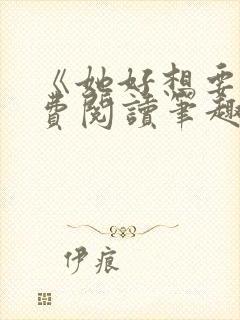 《她好想要
費閱讀筆趣
伊痕